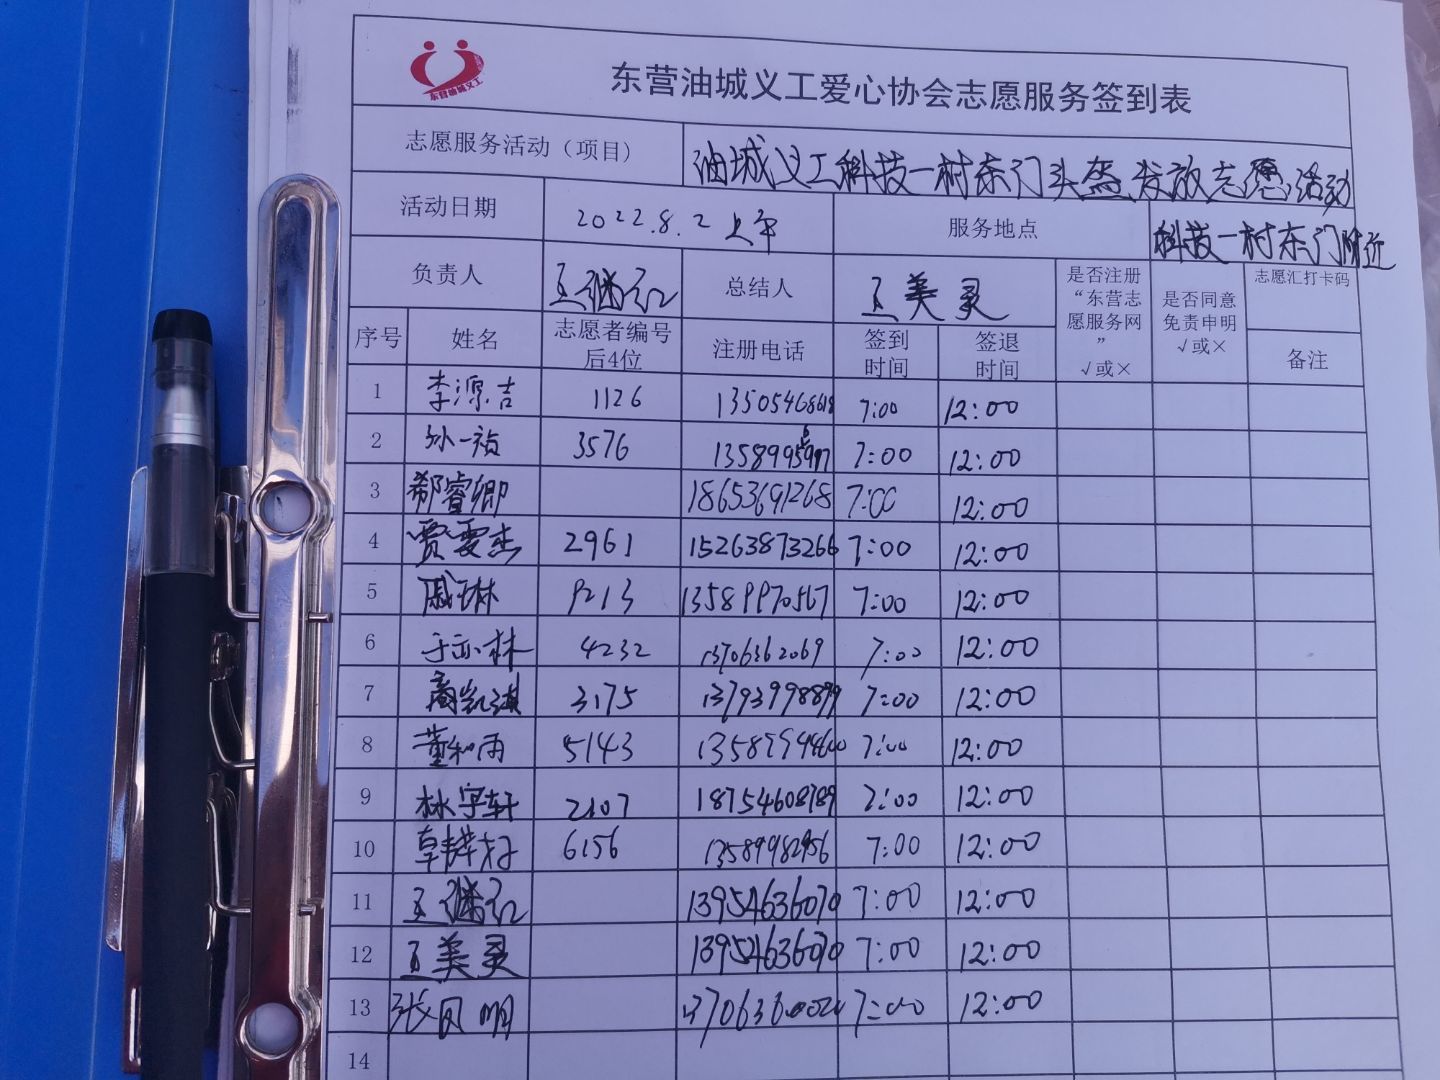 东营油城义工
东营油城义工爱心协会志愿服务签到表
志愿服务活动（项目） 油城义工科技一村东门头盔发放志愿活动
活动日期 2022.8.2 上午 服务地点 科技一村东门附近
负责人 王继红 总结人 王美灵 是否注册“东营志愿服务网” √或× 是否同意免责申明 √或× 志愿汇打卡码
序号 姓名 志愿者编号后4位 注册电话 签到时间 签退时间 备注
1 李源吉 1126 13505468618 7:00 12:00
2 孙一 3576 7:00 12:00
3 郗睿卿 18653691268 7:00 12:00
4 贾雯杰 2961 15263873266 7:00 12:00
5 戚琳 9213 13589970567 7:00 12:00
6 于 林 4232 13706362069 7:00 12:00
7 商凯淇 3175 13793998899 7:00 12:00
8 董和雨 5143 7:00 12:00
9 林宇轩 2107 18754608789 7:00 12:00
10 韩 6156 13589982956 7:00 12:00
11 王继红 13954636070 7:00 12:00
12 王美灵 13954636070 7:00 12:00
13 张凤明 7:00 12:00
14